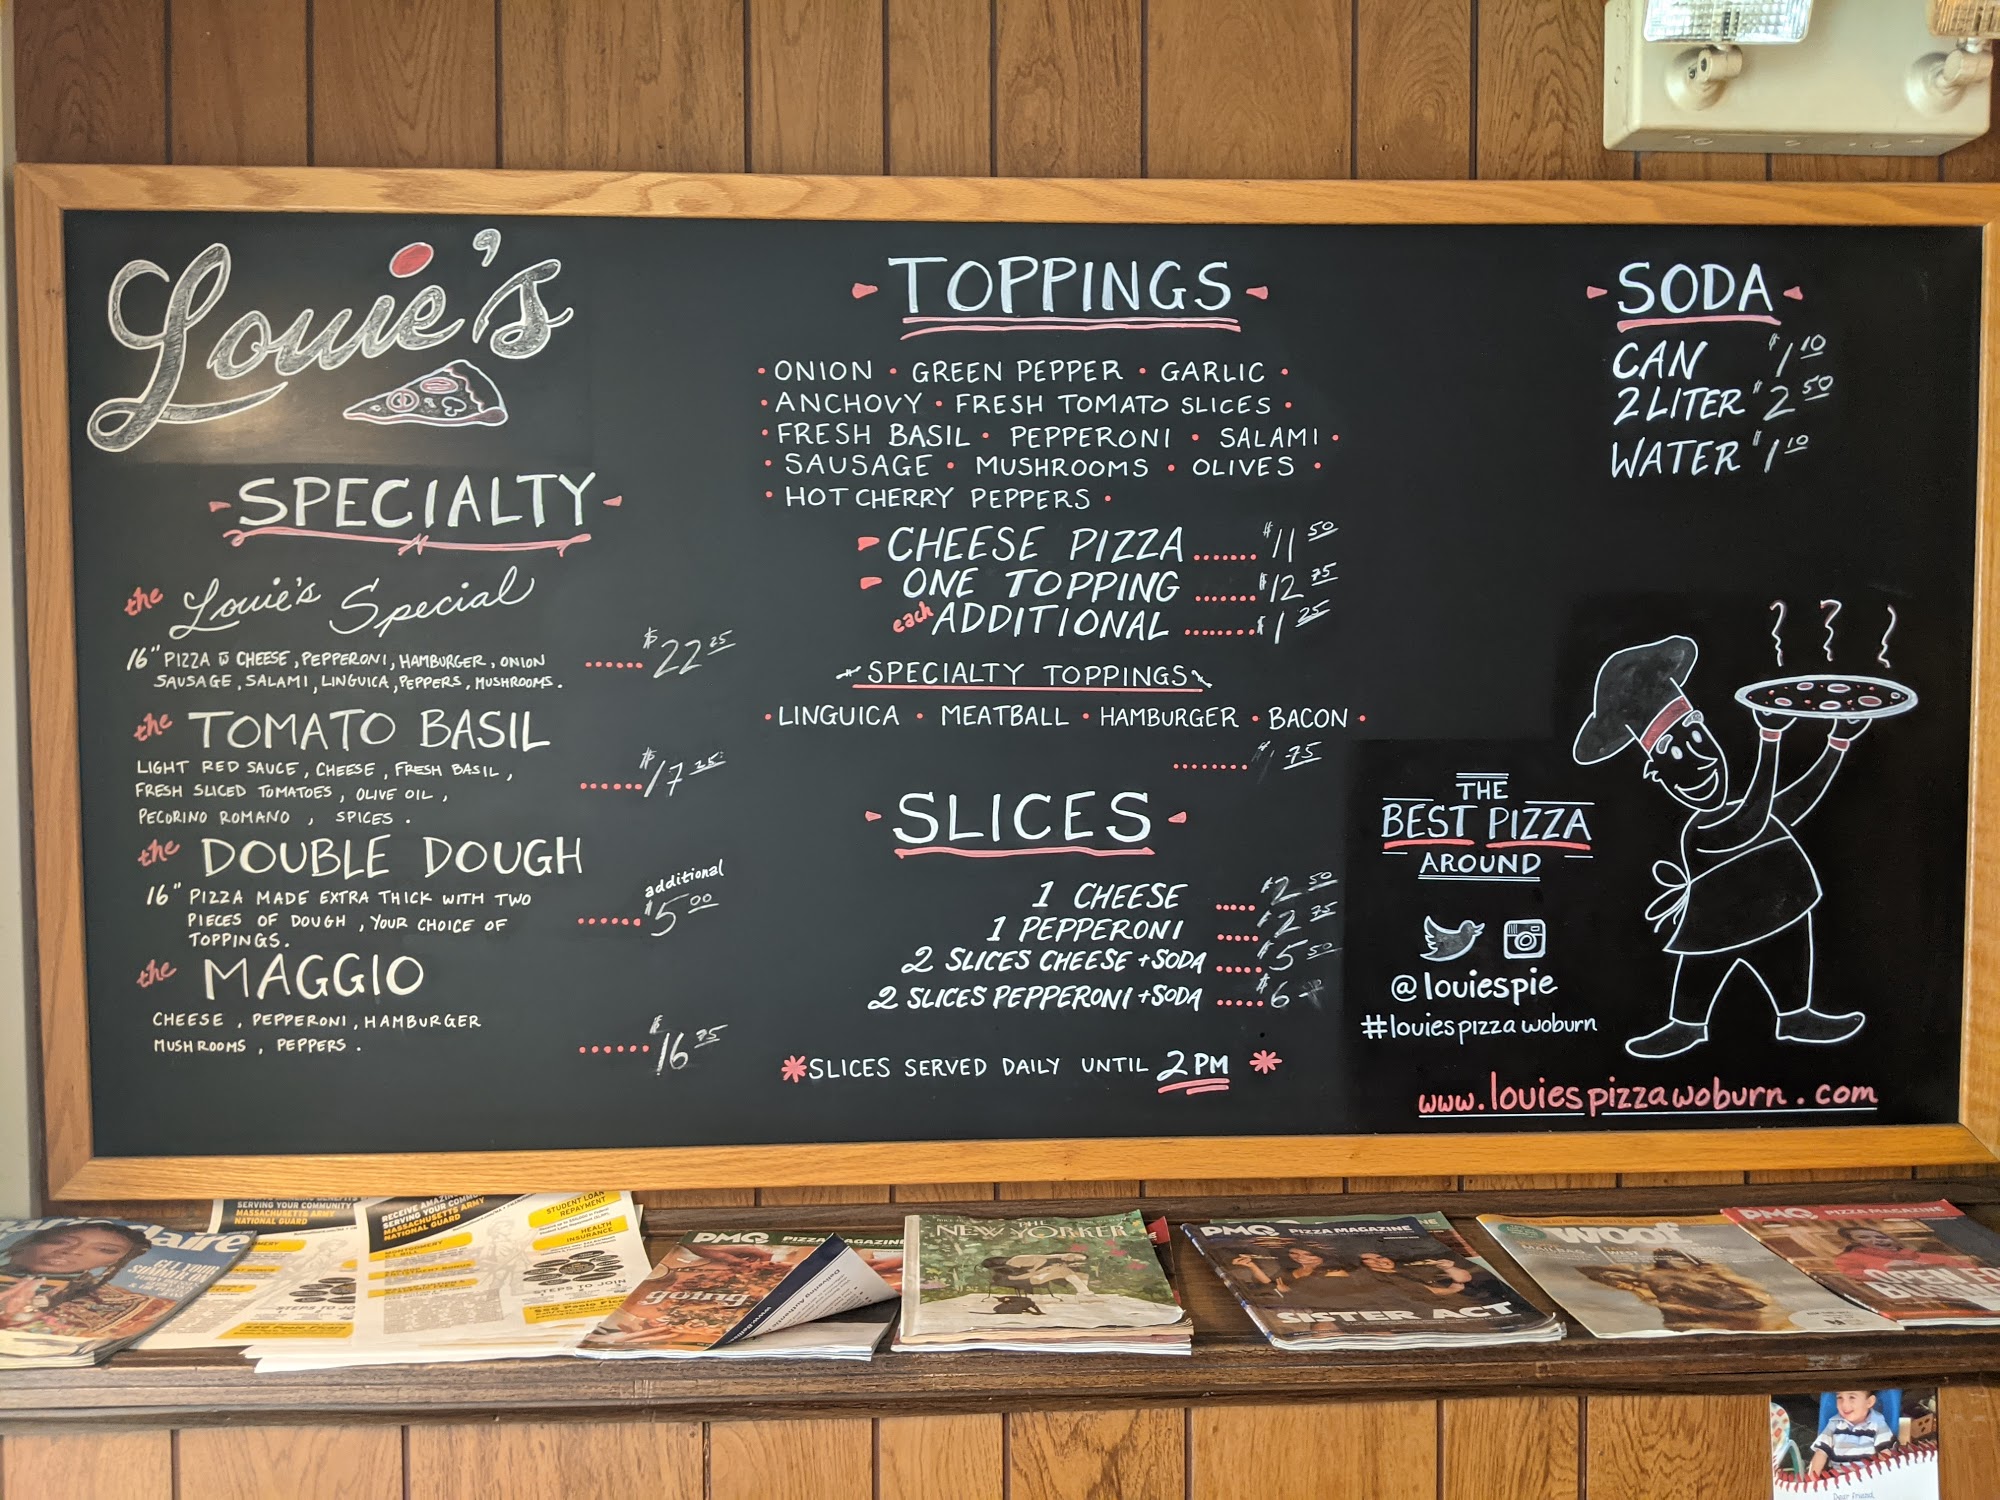 Louie's
SPECIALTY
the Louie's Special
16" PIZZA W CHEESE, PEPPERONI, HAMBURGER, ONION
SAUSAGE, SALAMI, LINGUICA, PEPPERS, MUSHROOMS.
...... $22 25
the TOMATO BASIL
LIGHT RED SAUCE, CHEESE, FRESH BASIL,
FRESH SLICED TOMATOES, OLIVE OIL,
PECORINO ROMANO, SPICES.
...... $17 25
the DOUBLE DOUGH
16" PIZZA MADE EXTRA THICK WITH TWO
PIECES OF DOUGH, YOUR CHOICE OF
TOPPINGS.
additional
...... $5 00
the MAGGIO
CHEESE, PEPPERONI, HAMBURGER
MUSHROOMS, PEPPERS.
....... $16 75
- TOPPINGS -
• ONION • GREEN PEPPER • GARLIC •
• ANCHOVY • FRESH TOMATO SLICES •
• FRESH BASIL • PEPPERONI • SALAMI •
• SAUSAGE • MUSHROOMS • OLIVES •
• HOT CHERRY PEPPERS •
- CHEESE PIZZA ....... $11 50
- ONE TOPPING ....... $12 75
each ADDITIONAL ....... $1 25
SPECIALTY TOPPINGS
• LINGUICA • MEATBALL • HAMBURGER • BACON •
........ $1 75
- SLICES -
1 CHEESE ..... $2 50
1 PEPPERONI ..... $2 75
2 SLICES CHEESE + SODA ..... $5 50
2 SLICES PEPPERONI + SODA ..... $6
*SLICES SERVED DAILY UNTIL 2 PM *
- SODA -
CAN $1 10
2 LITER $2 50
WATER $1 10
THE
BEST PIZZA
AROUND
@louiespie
#louiespizzawoburn
www.louiespizzawoburn.com
SERVING YOUR COMMUNITY
MASSACHUSETTS ARMY
NATIONAL GUARD
SERVING YOUR COMMU
MASSACHUSETTS ARMY
NATIONAL GUARD
STUDENT LOAN
REPAYMENT
HEALTH
INSURANCE
MONTGOMERY
STEPS TO JOIN
PMQ PIZZA MAGAZINE
going
THE
NEW YORKER
PMQ PIZZA MAGAZINE
SISTER ACT
WOOF
PMQ PIZZA MAGAZINE